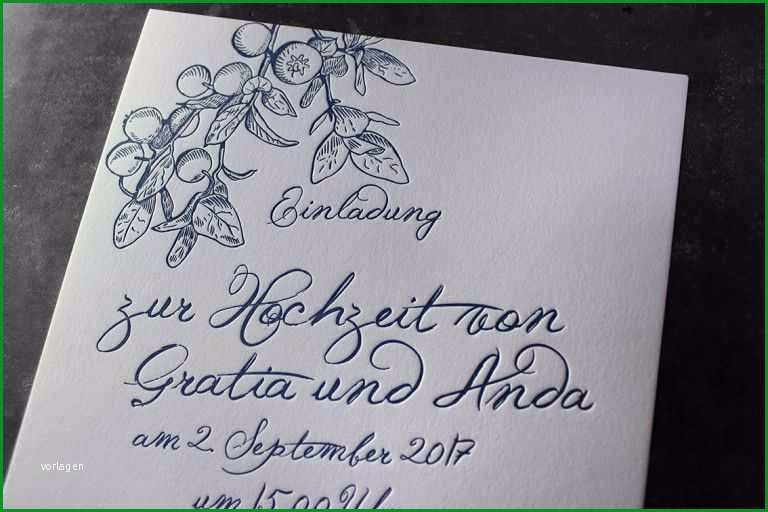 Einladung
zur Hochzeit von
Gratia und Anda
am 2. September 2017
um 15.00 Uh
vorlagen